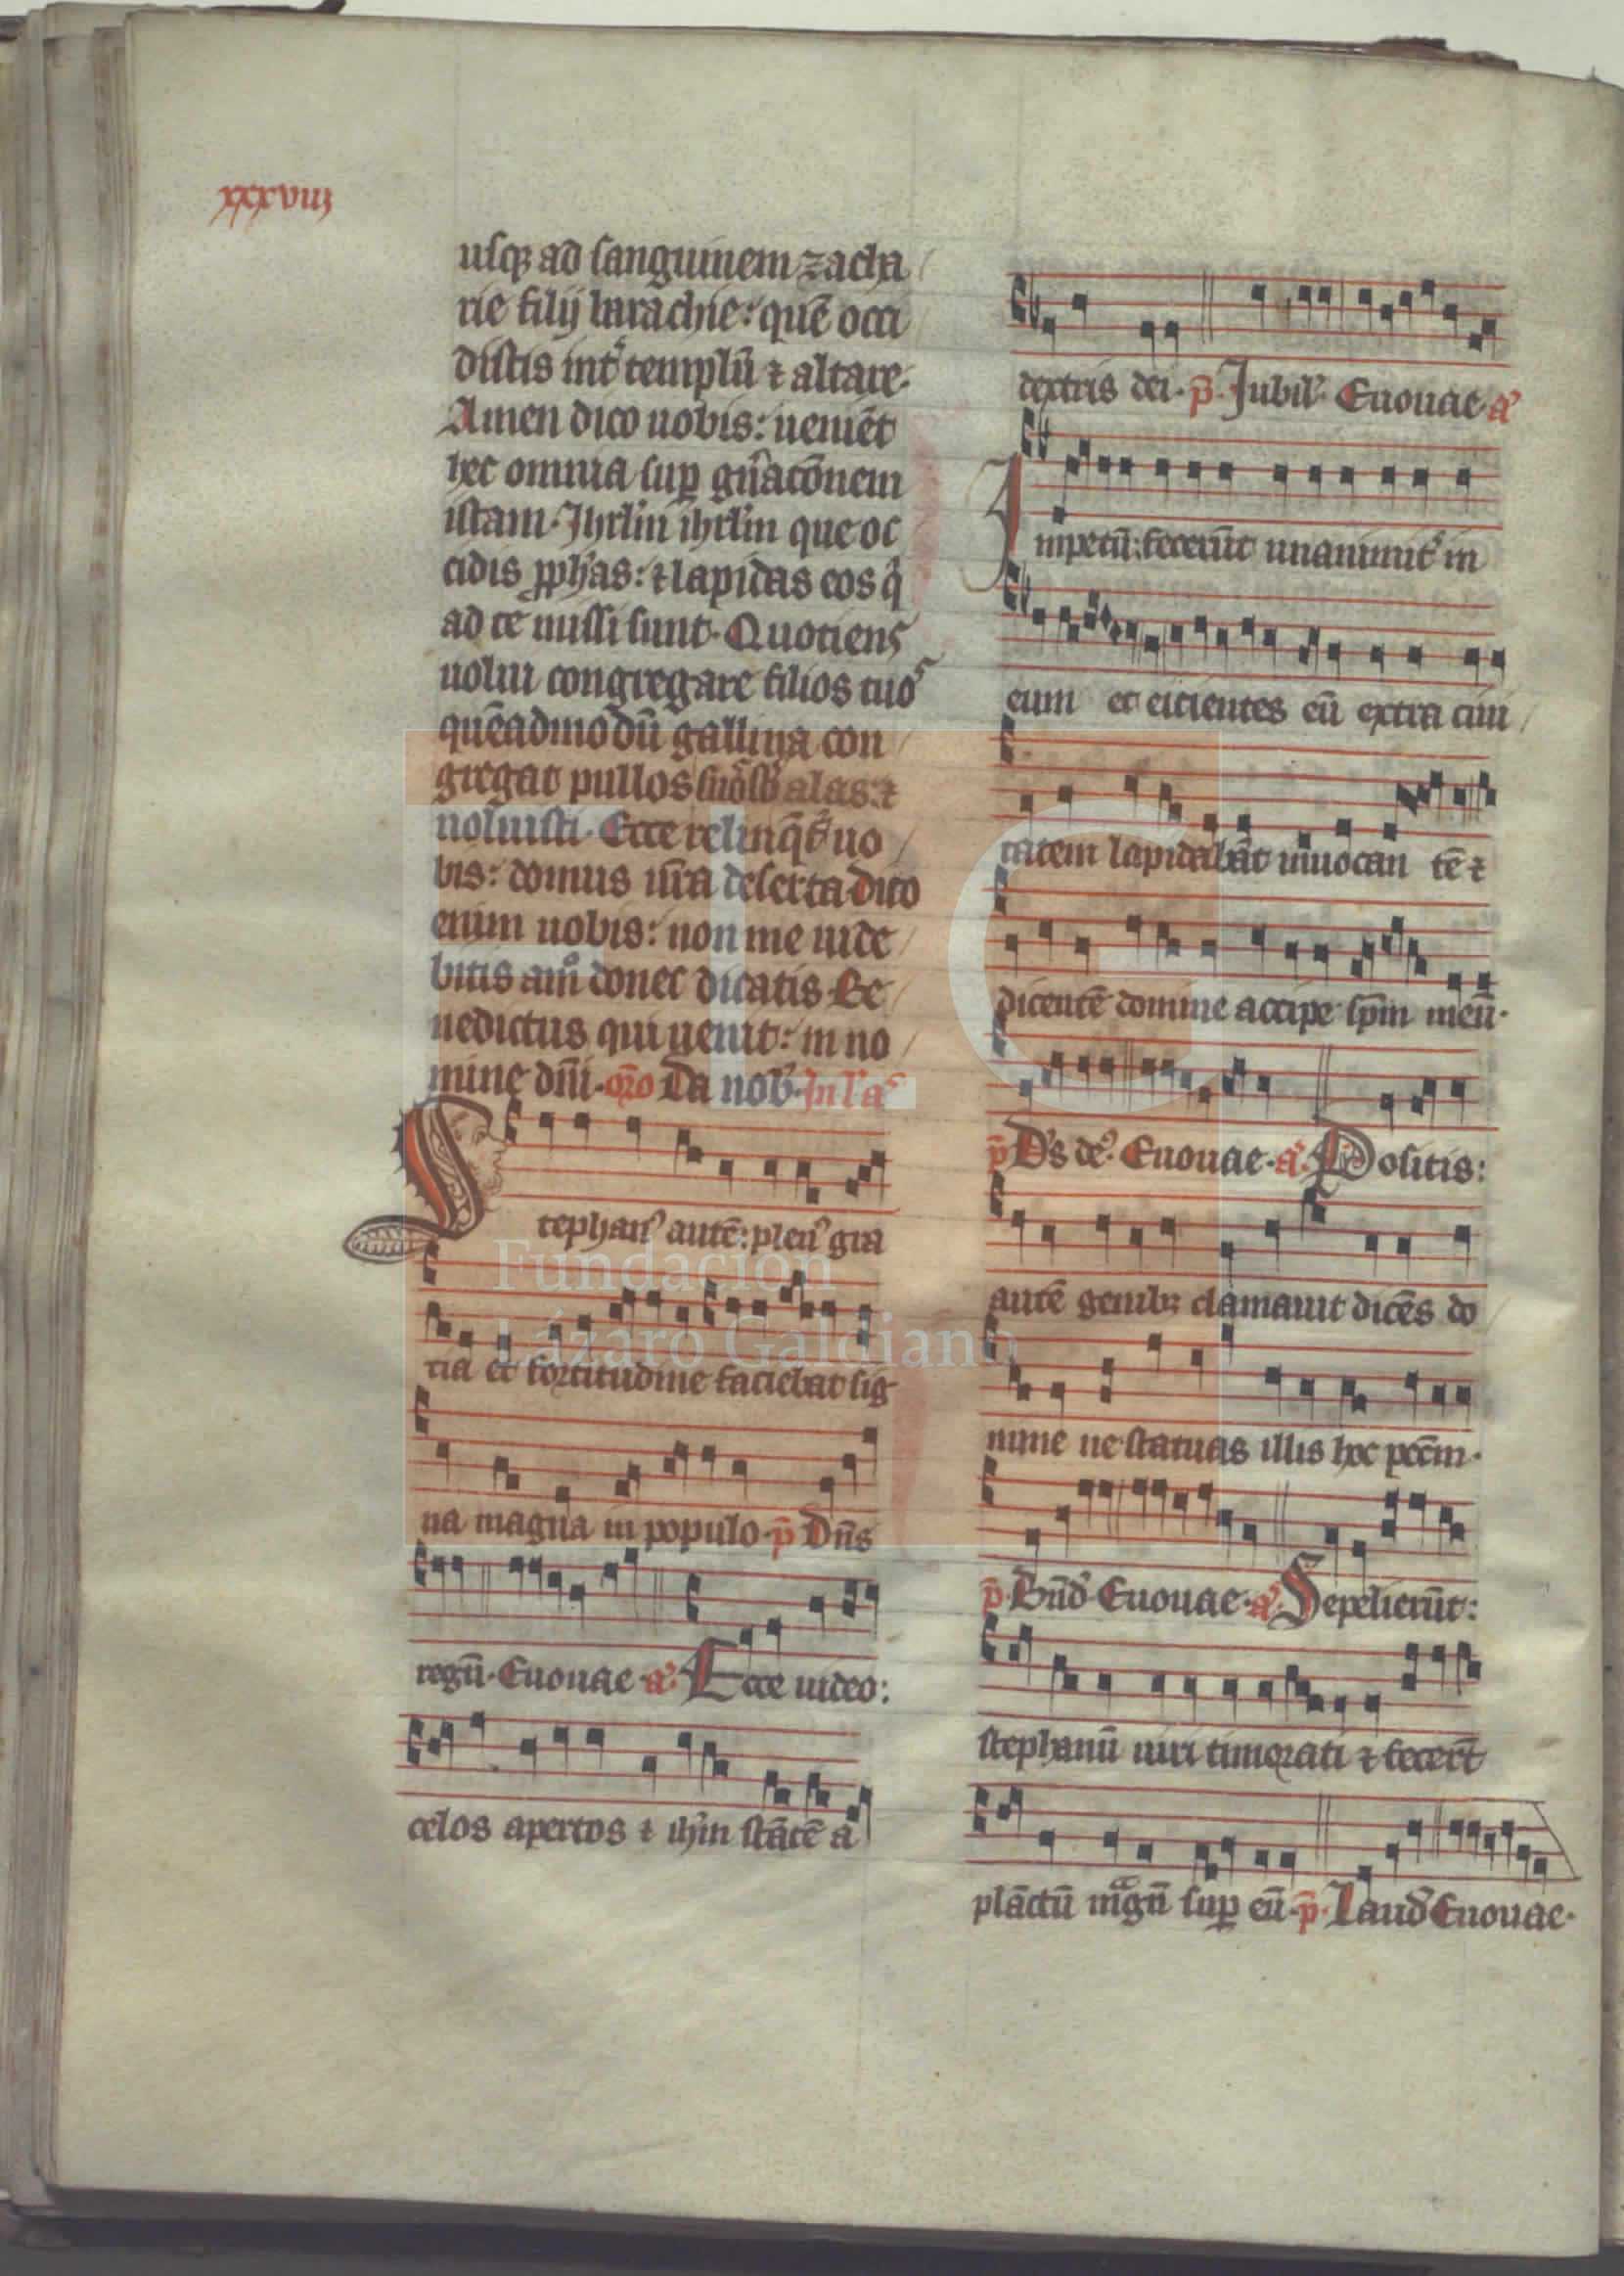 xxxviii
usq3 ad sanguinem zacha
rie filij barachie: quē occi
distis int̄ templū ⁊ altare.
Amen dico uobis: ueniēt
hec omnia sup gn̄acōnem
istam. Jhrl̄m ihrl̄m que oc
cidis pphās: ⁊ lapidas eos q̄
ad te missi sunt. Quotiens
uolui congregare filios tuos
quēadmodū gallina con
gregat pullos suos sb alas: ⁊
noluisti. Ecce relinq̄t̄ uo
bis: domus ur̄a deserta dico
enim uobis: non me uide
bitis amō donec dicatis Be
nedictus qui uenit: in no
mine dn̄i. or̄o Da nob̄. In l̓ a
Stephan⁹ autē: plen⁹ gra
tia et fortitudine faciebat sig
na magna in populo. p̄ Dn̄s
regn̄. Euouae. a᷒ Ecce uideo:
celos apertos ⁊ ihm̄ stātē a
dextris dei. p̄. Jubil̓. Euouae. a᷒
Impetū: fecerūt unanimit̄ in
eum et eicientes eū extra ciui
tatem lapidabāt inuocan tē ⁊
dicentē domine accipe sp̄m meū.
p̄ Ds̄ de⁹. Euouae. a᷒. Positis:
autē genib3 clamauit dicēs do
mine ne statuas illis hoc pccm̄.
p̄. Bn̄d̄. Euouae. a᷒. Sepelierūt:
stephanū uiri timorati ⁊ fecer̄t
plāctū mᵃgn̄ sup eū. p̄. Laud̄ Euouae.
Fundación
Lázaro Galdiano